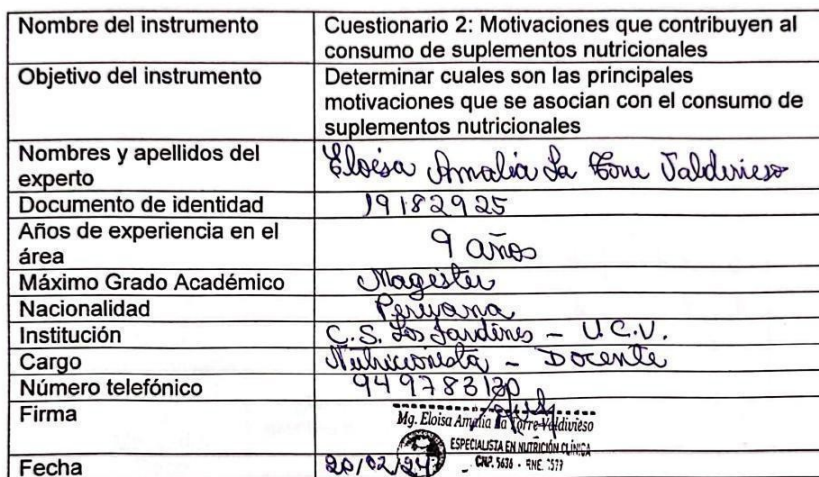 Nombre del instrumento Cuestionario 2: Motivaciones que contribuyen al
consumo de suplementos nutricionales
Objetivo del instrumento Determinar cuales son las principales
motivaciones que se asocian con el consumo de
suplementos nutricionales
Nombres y apellidos del
experto Eloisa Amalia La Torre Valdivieso
Documento de identidad 19182925
Años de experiencia en el
área 9 años
Máximo Grado Académico Magister
Nacionalidad Peruana
Institución C.S. Los Jardines – U.C.V.
Cargo Nutricionista – Docente
Número telefónico 949783130
Firma
Mg. Eloisa Amalia La Torre Valdivieso
ESPECIALISTA EN NUTRICIÓN CLÍNICA
CNP. 5636 - RNE.
Fecha 20/02/24